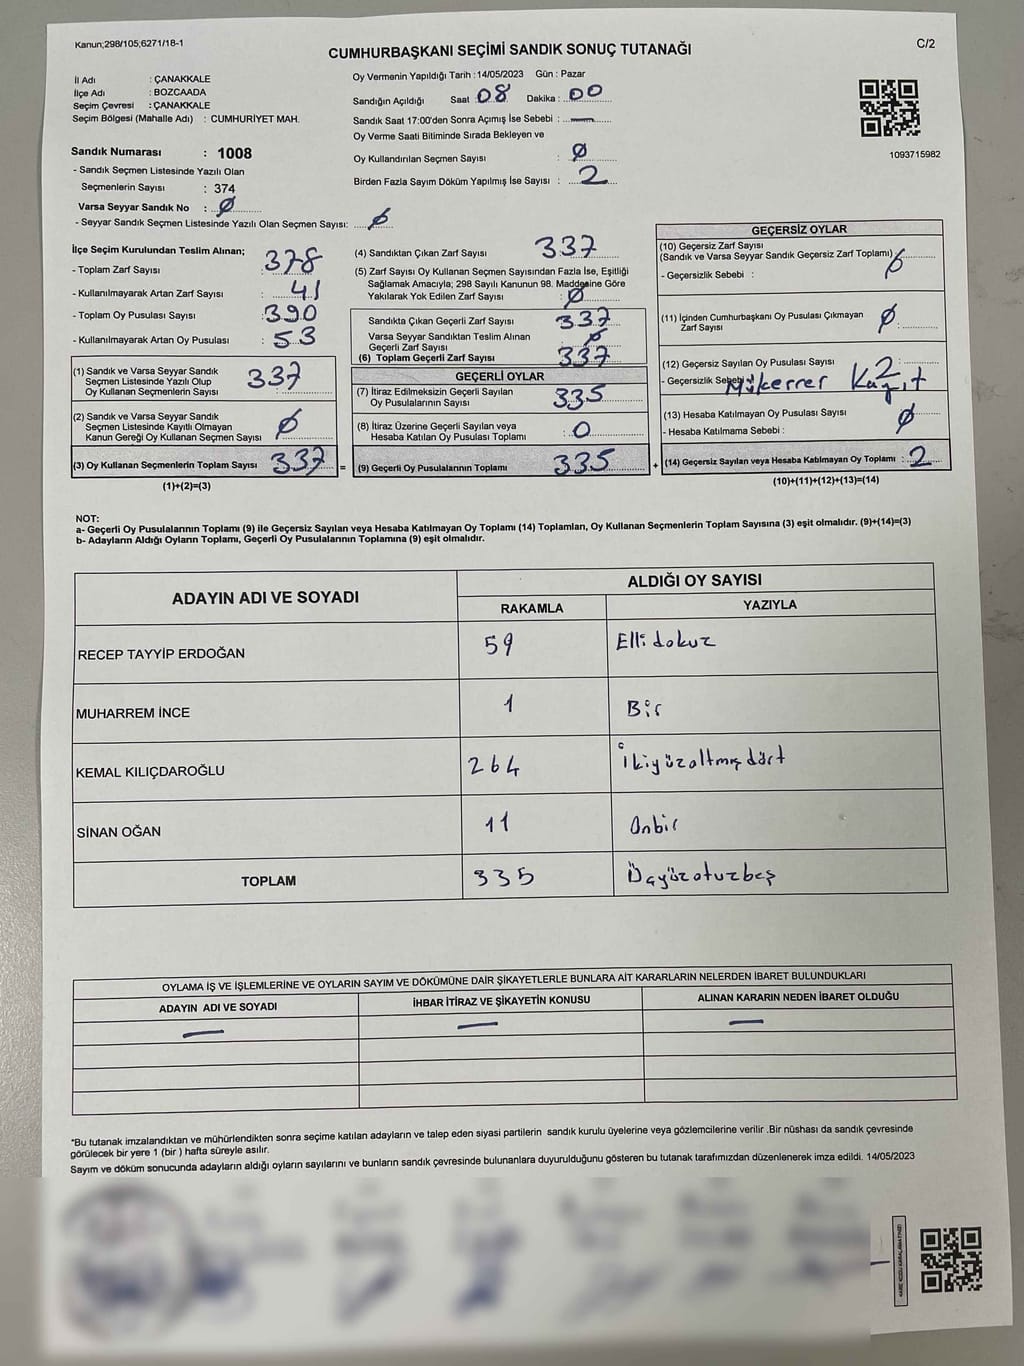 Kanun;298/105;6271/18-1
CUMHURBAŞKANI SEÇİMİ SANDIK SONUÇ TUTANAĞI
C/2
İl Adı : ÇANAKKALE
İlçe Adı : BOZCAADA
Seçim Çevresi : ÇANAKKALE
Seçim Bölgesi (Mahalle Adı) : CUMHURİYET MAH.
Oy Vermenin Yapıldığı Tarih : 14/05/2023 Gün : Pazar
Sandığın Açıldığı Saat : 08 Dakika : 00
Sandık Saat 17:00'den Sonra Açımış İse Sebebi : —
Oy Verme Saati Bitiminde Sırada Bekleyen ve
Oy Kullandırılan Seçmen Sayısı : Ø
Birden Fazla Sayım Döküm Yapılmış İse Sayısı : 2
1093715982
Sandık Numarası : 1008
- Sandık Seçmen Listesinde Yazılı Olan
Seçmenlerin Sayısı : 374
Varsa Seyyar Sandık No : Ø
- Seyyar Sandık Seçmen Listesinde Yazılı Olan Seçmen Sayısı: Ø
İlçe Seçim Kurulundan Teslim Alınan;
- Toplam Zarf Sayısı : 378
- Kullanılmayarak Artan Zarf Sayısı : 41
- Toplam Oy Pusulası Sayısı : 390
- Kullanılmayarak Artan Oy Pusulası : 53
(1) Sandık ve Varsa Seyyar Sandık
Seçmen Listesinde Yazılı Olup
Oy Kullanan Seçmenlerin Sayısı 337
(2) Sandık ve Varsa Seyyar Sandık
Seçmen Listesinde Kayıtlı Olmayan
Kanun Gereği Oy Kullanan Seçmen Sayısı Ø
(3) Oy Kullanan Seçmenlerin Toplam Sayısı 337 =
(1)+(2)=(3)
(4) Sandıktan Çıkan Zarf Sayısı 337
(5) Zarf Sayısı Oy Kullanan Seçmen Sayısından Fazla İse, Eşitliği
Sağlamak Amacıyla; 298 Sayılı Kanunun 98. Maddesine Göre
Yakılarak Yok Edilen Zarf Sayısı : Ø
Sandıkta Çıkan Geçerli Zarf Sayısı 337
Varsa Seyyar Sandıktan Teslim Alınan
Geçerli Zarf Sayısı Ø
(6) Toplam Geçerli Zarf Sayısı 337
GEÇERLİ OYLAR
(7) İtiraz Edilmeksizin Geçerli Sayılan
Oy Pusulalarının Sayısı 335
(8) İtiraz Üzerine Geçerli Sayılan veya
Hesaba Katılan Oy Pusulası Toplamı : 0
(9) Geçerli Oy Pusulalarının Toplamı 335 +
GEÇERSİZ OYLAR
(10) Geçersiz Zarf Sayısı
(Sandık ve Varsa Seyyar Sandık Geçersiz Zarf Toplamı) Ø
- Geçersizlik Sebebi :
(11) İçinden Cumhurbaşkanı Oy Pusulası Çıkmayan
Zarf Sayısı Ø
(12) Geçersiz Sayılan Oy Pusulası Sayısı : 2
- Geçersizlik Sebebi : Mükerrer Kağıt
(13) Hesaba Katılmayan Oy Pusulası Sayısı Ø
- Hesaba Katılmama Sebebi :
(14) Geçersiz Sayılan veya Hesaba Katılmayan Oy Toplamı : 2
(10)+(11)+(12)+(13)=(14)
NOT:
a- Geçerli Oy Pusulalarının Toplamı (9) ile Geçersiz Sayılan veya Hesaba Katılmayan Oy Toplamı (14) Toplamları, Oy Kullanan Seçmenlerin Toplam Sayısına (3) eşit olmalıdır. (9)+(14)=(3)
b- Adayların Aldığı Oyların Toplamı, Geçerli Oy Pusulalarının Toplamına (9) eşit olmalıdır.
ADAYIN ADI VE SOYADI
ALDIĞI OY SAYISI
RAKAMLA YAZIYLA
RECEP TAYYİP ERDOĞAN 59 Elli dokuz
MUHARREM İNCE 1 Bir
KEMAL KILIÇDAROĞLU 264 İkiyüzaltmışdört
SİNAN OĞAN 11 Onbir
TOPLAM 335 Üçyüzotuzbeş
OYLAMA İŞ VE İŞLEMLERİNE VE OYLARIN SAYIM VE DÖKÜMÜNE DAİR ŞİKAYETLERLE BUNLARA AİT KARARLARIN NELERDEN İBARET BULUNDUKLARI
ADAYIN ADI VE SOYADI İHBAR İTİRAZ VE ŞİKAYETİN KONUSU ALINAN KARARIN NEDEN İBARET OLDUĞU
— — —
*Bu tutanak imzalandıktan ve mühürlendikten sonra seçime katılan adayların ve talep eden siyasi partilerin sandık kurulu üyelerine veya gözlemcilerine verilir .Bir nüshası da sandık çevresinde
görülecek bir yere 1 (bir ) hafta süreyle asılır.
Sayım ve döküm sonucunda adayların aldığı oyların sayılarını ve bunların sandık çevresinde bulunanlara duyurulduğunu gösteren bu tutanak tarafımızdan düzenlenerek imza edildi. 14/05/2023